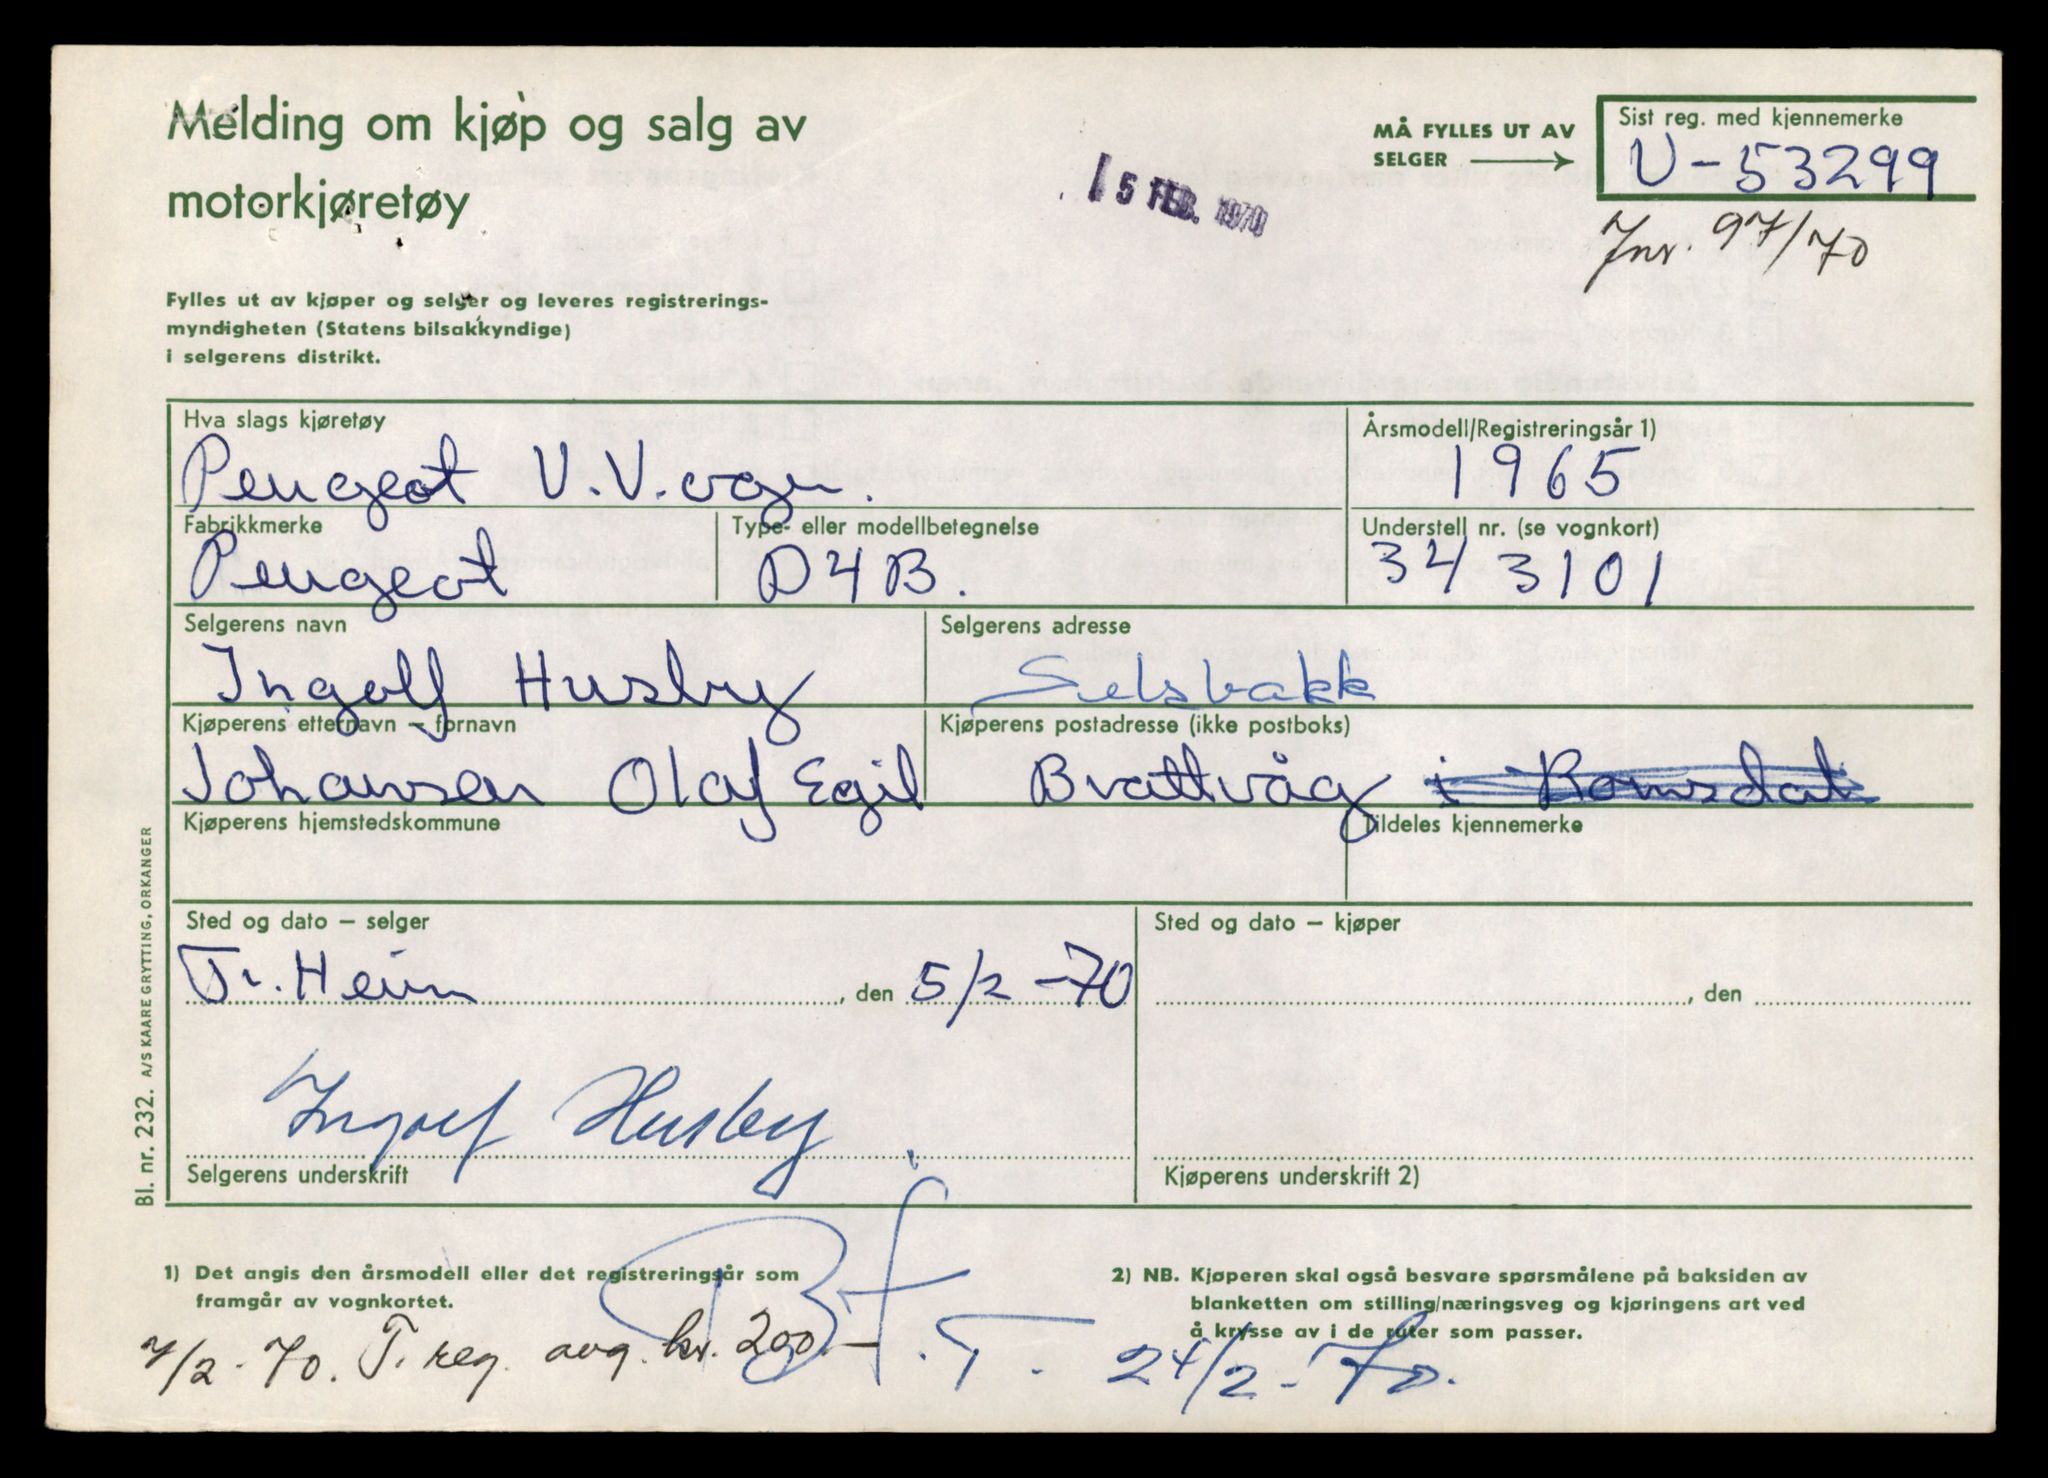 Melding om kjøp og salg av
motorkjøretøy
5 FEB. 1970
MÅ FYLLES UT AV
SELGER
Sist reg. med kjennemerke
U-53299
Jnr. 97/70
Fylles ut av kjøper og selger og leveres registrerings-
myndigheten (Statens bilsakkyndige)
i selgerens distrikt.
Hva slags kjøretøy
Peugeot V.V.vogn.
Årsmodell/Registreringsår 1)
1965
Fabrikkmerke
Peugeot
Type- eller modellbetegnelse
D4B.
Understell nr. (se vognkort)
343101
Selgerens navn
Ingolf Husby
Selgerens adresse
Selsbakk
Kjøperens etternavn – fornavn
Johansen Olaf Egil
Kjøperens postadresse (ikke postboks)
Brattvåg i Romsdal
Kjøperens hjemstedskommune
Tildeles kjennemerke
Sted og dato – selger
Tr. Heim, den 5/2-70
Sted og dato – kjøper
, den
Ingolf Husby
Selgerens underskrift
Kjøperens underskrift 2)
1) Det angis den årsmodell eller det registreringsår som
framgår av vognkortet.
2) NB. Kjøperen skal også besvare spørsmålene på baksiden av
blanketten om stilling/næringsveg og kjøringens art ved
å krysse av i de ruter som passer.
7/2-70. T. reg. avg. kr. 200.-
24/2-70.
Bl. nr. 232. A/S KAARE GRYTTING, ORKANGER